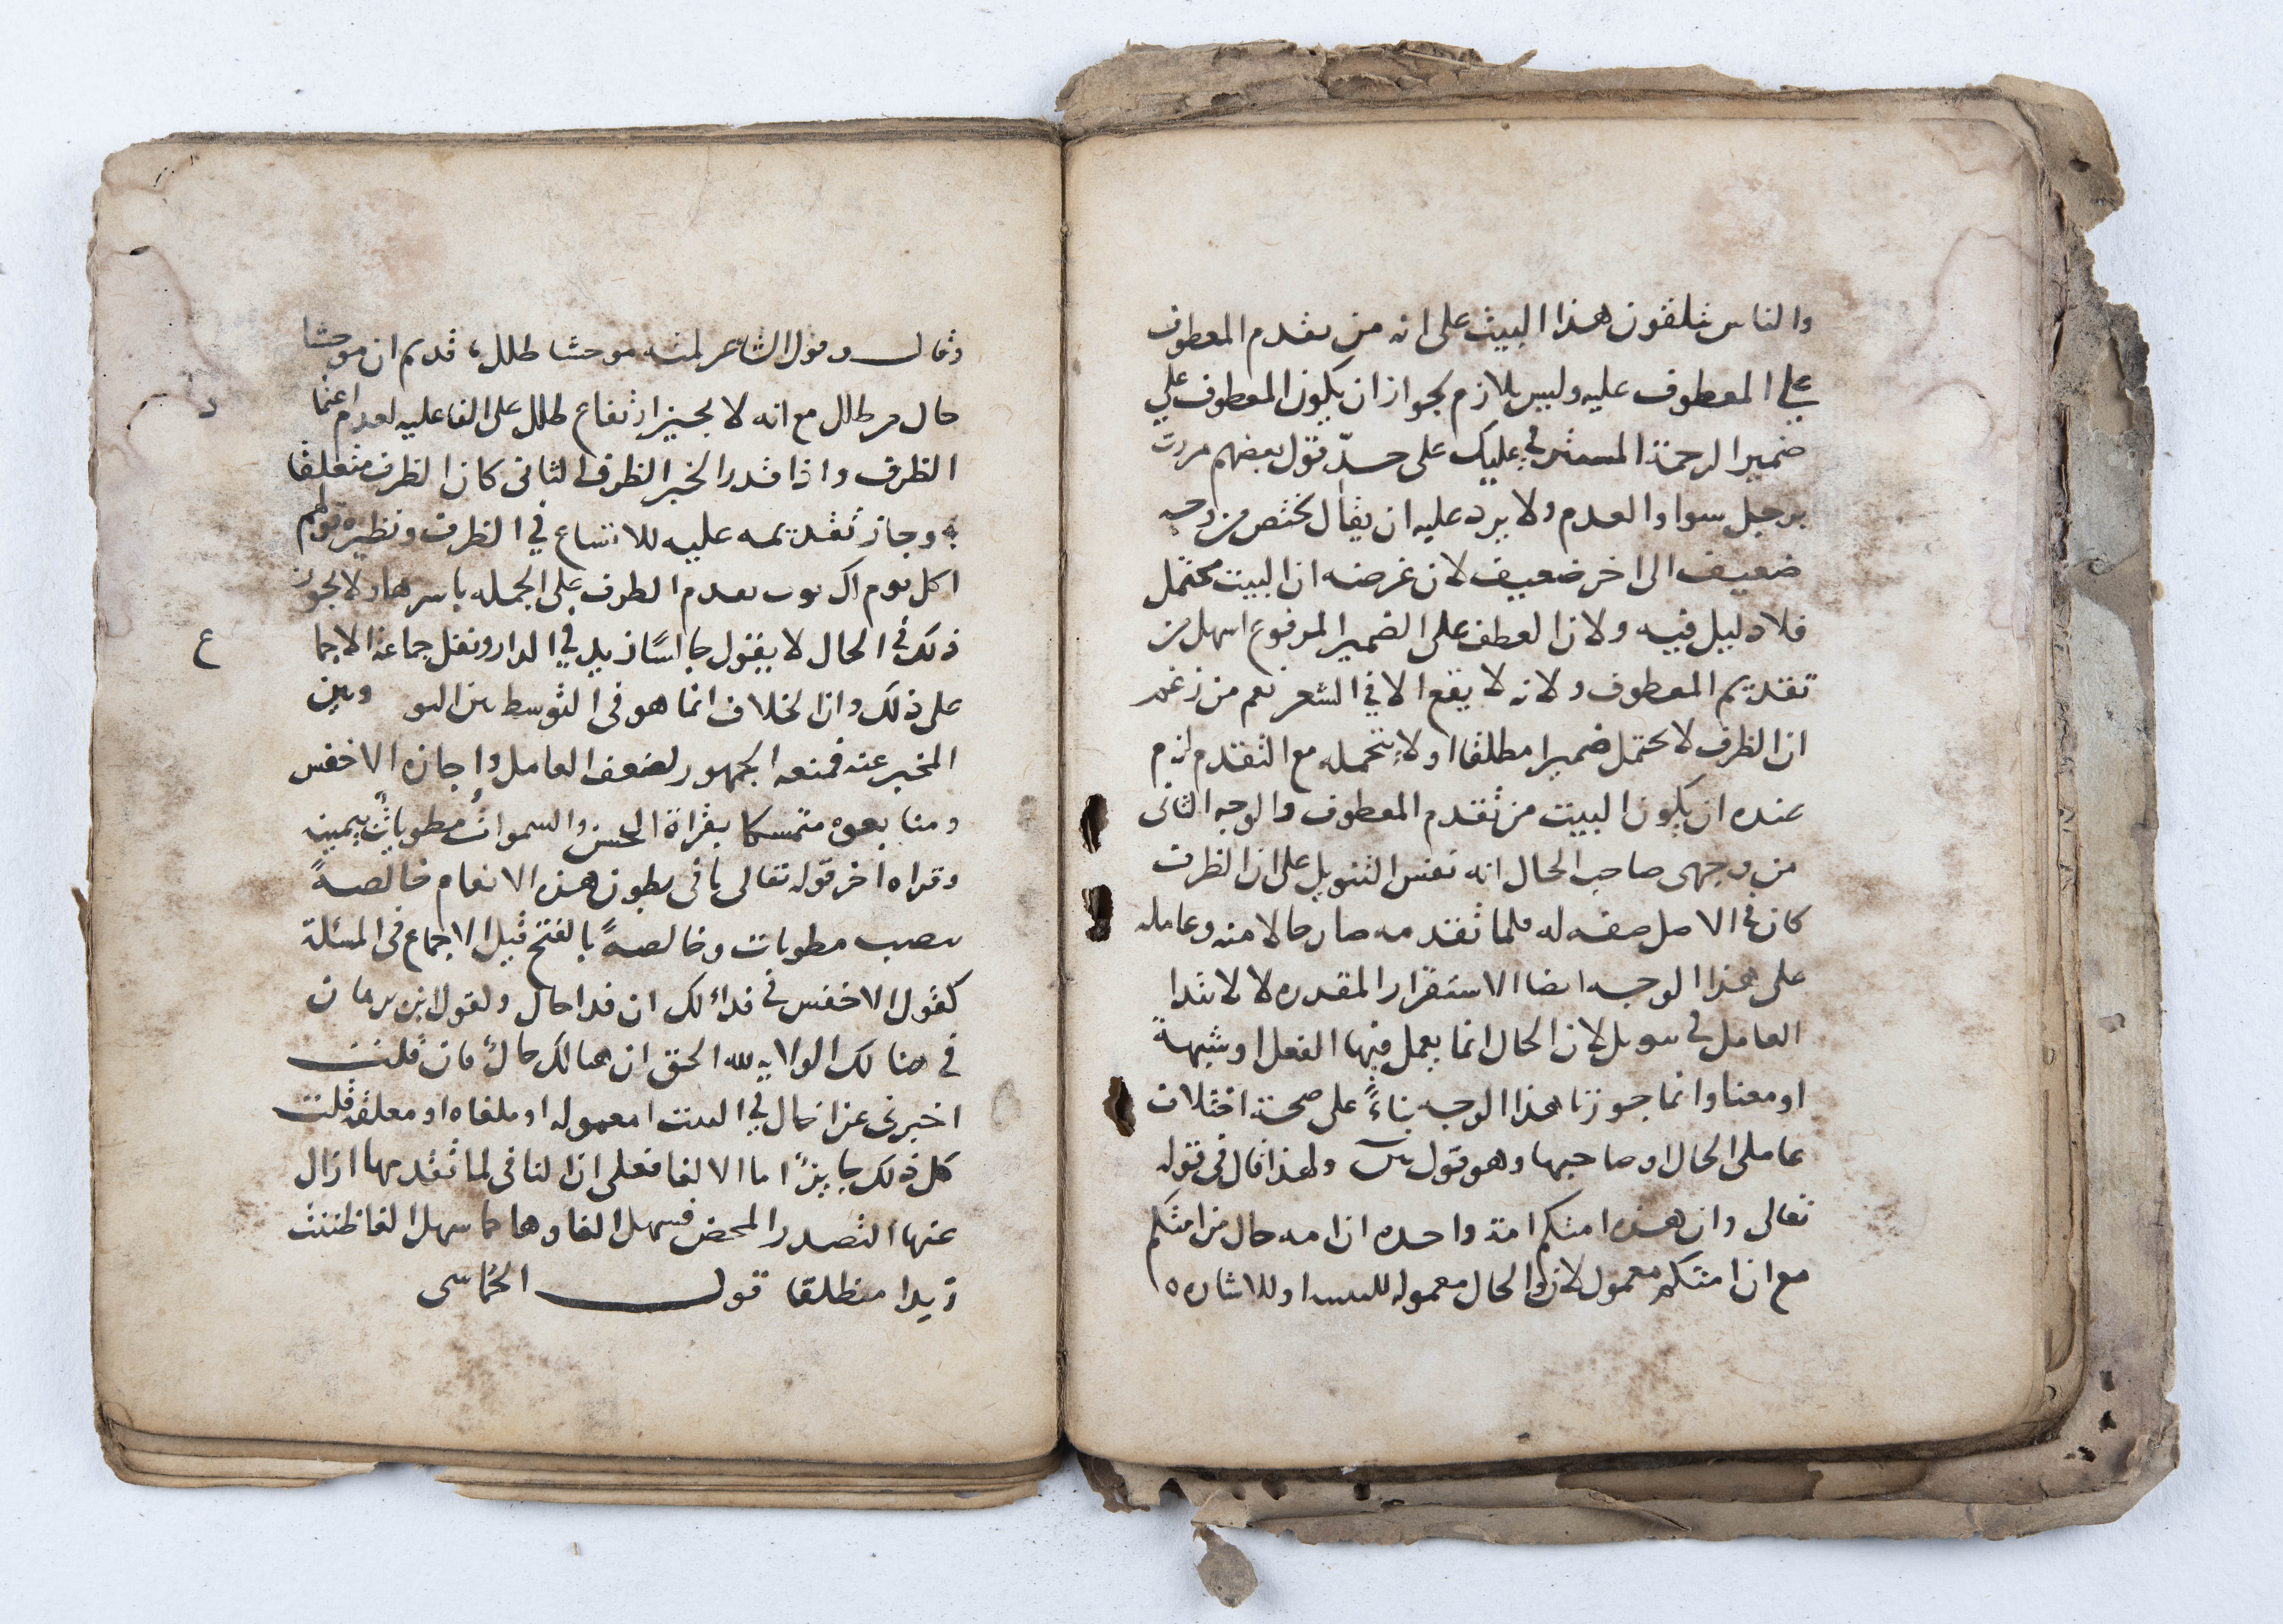 والناس يتلقون هذا البيت على انه من تقدم المعطوف
على المعطوف عليه وليس بلازم لجواز ان يكون المعطوف على
ضمير الرحمة المستتر في عليك على حدّ قول بعضهم مررت
برجل سوا والعدم ولا يرد عليه ان يقال تخلص من وجه
ضعيف الى اخر ضعيف لان غرضه ان البيت محتمل
فلا دليل فيه ولان العطف على الضمير المرفوع اسهل من
تقديم المعطوف ولانه لا يقع الا في الشعر نعم من زعم
ان الظرف لا يحتمل ضميرا مطلقا او لا يتحمله مع التقدم لزم
عنده ان يكون البيت من تقدم المعطوف والوجه الثاني
من وجهى صاحب الحال انه نفس على ان الظرف
كان في الاصل صفه له فلما تقدمه صار حالا منه وعامله
على هذا الوجه ايضا الاستقرار المقدر لا الابتدا
العامل في لان الحال انما يعمل فيها الفعل او شبهه
او معناه وانما جوزنا هذا الوجه بناءً على صحة اختلاف
عاملى الحال وصاحبها وهو قول س ولهذا قال في قوله
تعالى وان هذه امتكم امة واحده ان امه حال من امتكم
مع ان امتكم معمول لان والحال معموله او للاشاره
وقال وقول الشاعر لميه موحشا طلل، قديم ان موحشا
حال من طلل مع انه لا يجيز ارتفاع طلل على الفاعليه لعدم اعتما
د
الظرف واذا قدر الخبر الظرف الثاني كان الظرف متعلقا
به وجاز تقديمه عليه للاتساع في الظرف ونظيره قولهم
اكل يوم لك ثوب تقدم الظرف على الجمله باسرها ولا يجوز
ذلك في الحال لا يقول جالسًا زيد في الدار ونقل جماعة الاجما
ع
على ذلك وان الخلاف انما هو في التوسط بين وبين
المخبر عنه فمنعه الجمهور لضعف العامل واجازه الاخفش
ومتابعوه متمسكا بقراة الحسن والسموات مطويات بيمينه
وقراه اخر قوله تعالى ما في بطون هذه الانعام خالصةً
بنصب مطويات وخالصةً بالفتح قيل الاجماع في المسئلة
كقول الاخفش في فداء لك ان فدا حال ولقول ابن برهان
في هنالك الولايه لله الحق ان هنالك حال فان قلت
اخبرنى عن اخال في البيت امعموله او ملغاه او معلقه قلت
كل ذلك جايز اما الالغا فعلى ان النافى لما تقدمها ازال
عنها التصدر المحض فسهل الغاوها كما سهل الغا ظننت
زيدا منطلقا قول الحماسى